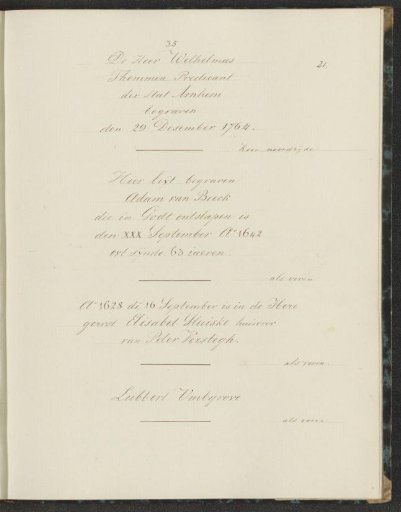 35
21.
De Heer Wilhelmus
Themmen Predicant
der stat Arnhem
begraven
den 29 Desember 1764.
Koor noordzyde
Hier lixt begraven
Adam van Beeck
die in Godt ontslapen is
den XXX September Aº 1642
out synde 63 iaeren.
als voren
Aº 1628 de 16 September is in de Here
gerust Elisabet huisvor
van Peter Verstegh.
als voren
Lubbert Umbgrove
als voren